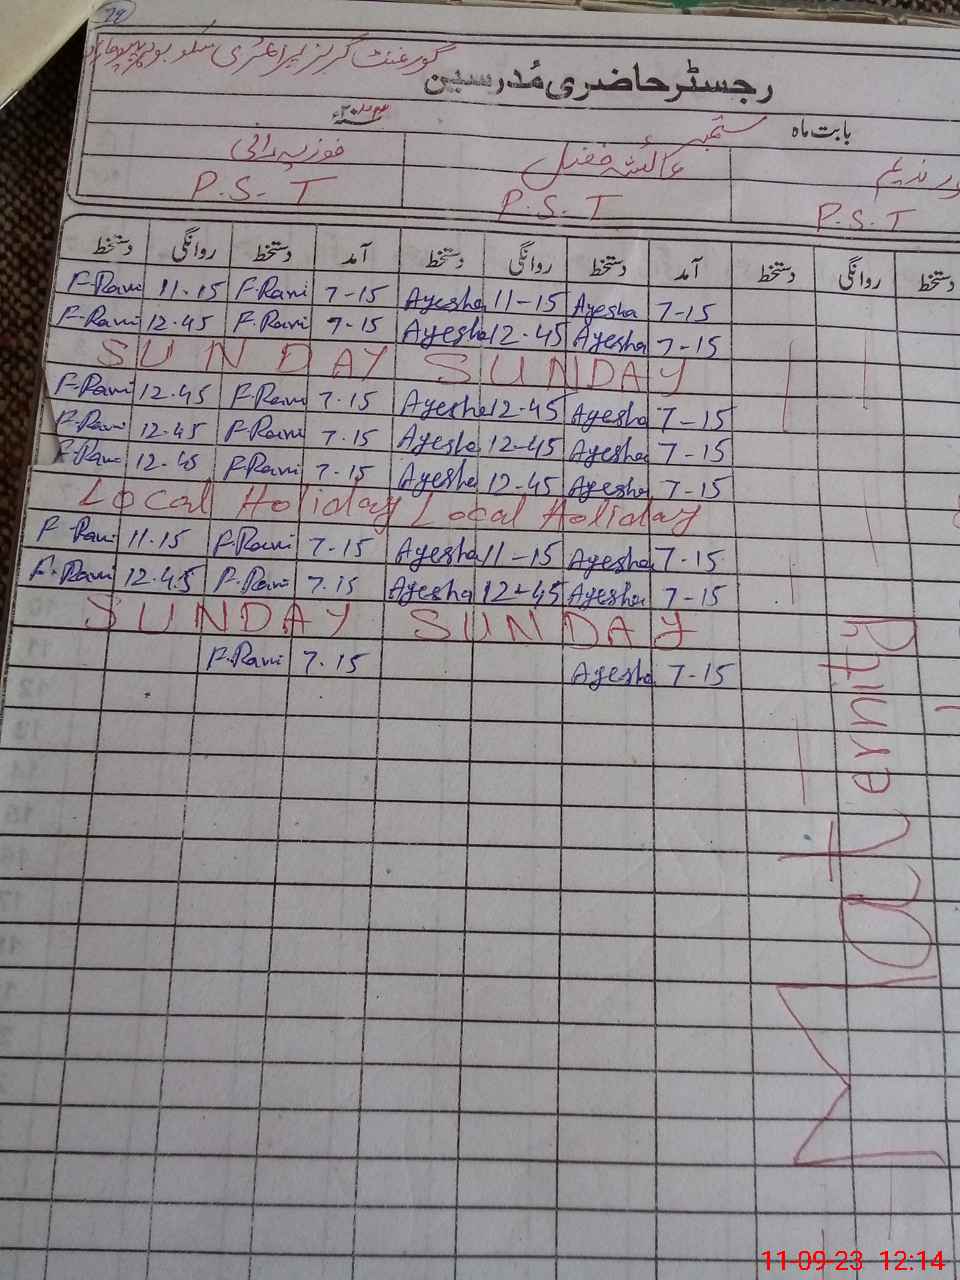 29
گورنمنٹ گرلز پرائمری سکول
رجسٹر حاضری مُدرسین
بابت ماہ ستمبر ۲۰۲۳ء
ندیم عائشہ فضل فوزیہ رانی
P.S.T P.S.T P.S.T
دستخط روانگی دستخط آمد دستخط روانگی دستخط آمد دستخط روانگی دستخط
F-Rani 11-15 F-Rani 7-15 Ayesha 11-15 Ayesha 7-15
F-Rani 12-45 F-Rani 7-15 Ayesha 12-45 Ayesha 7-15
SUNDAY SUNDAY
F-Rani 12.45 F-Rani 7.15 Ayesha 12-45 Ayesha 7-15
F-Rani 12.45 F-Rani 7.15 Ayesha 12-45 Ayesha 7-15
F-Rani 12.45 F-Rani 7.15 Ayesha 12-45 Ayesha 7-15
Local Holiday Local Holiday
F-Rani 11.15 F-Rani 7.15 Ayesha 11-15 Ayesha 7-15
F-Rani 12.45 F-Rani 7.15 Ayesha 12-45 Ayesha 7-15
SUNDAY SUNDAY
F-Rani 7.15 Ayesha 7-15
Maternity
11-09-23 12:14